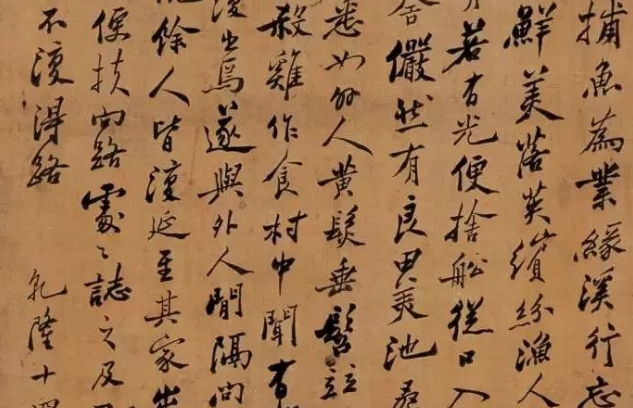 捕魚為業緣溪行忘
鮮美落英繽紛漁人
若有光便捨船從口入
舍儼然有良田美池
悉如外人黃髮垂髫
殺雞作食村中聞有
復出焉遂與外人間隔問
餘人皆復延至其家出
便扶向路處〻誌之及
不復得路
乾隆十